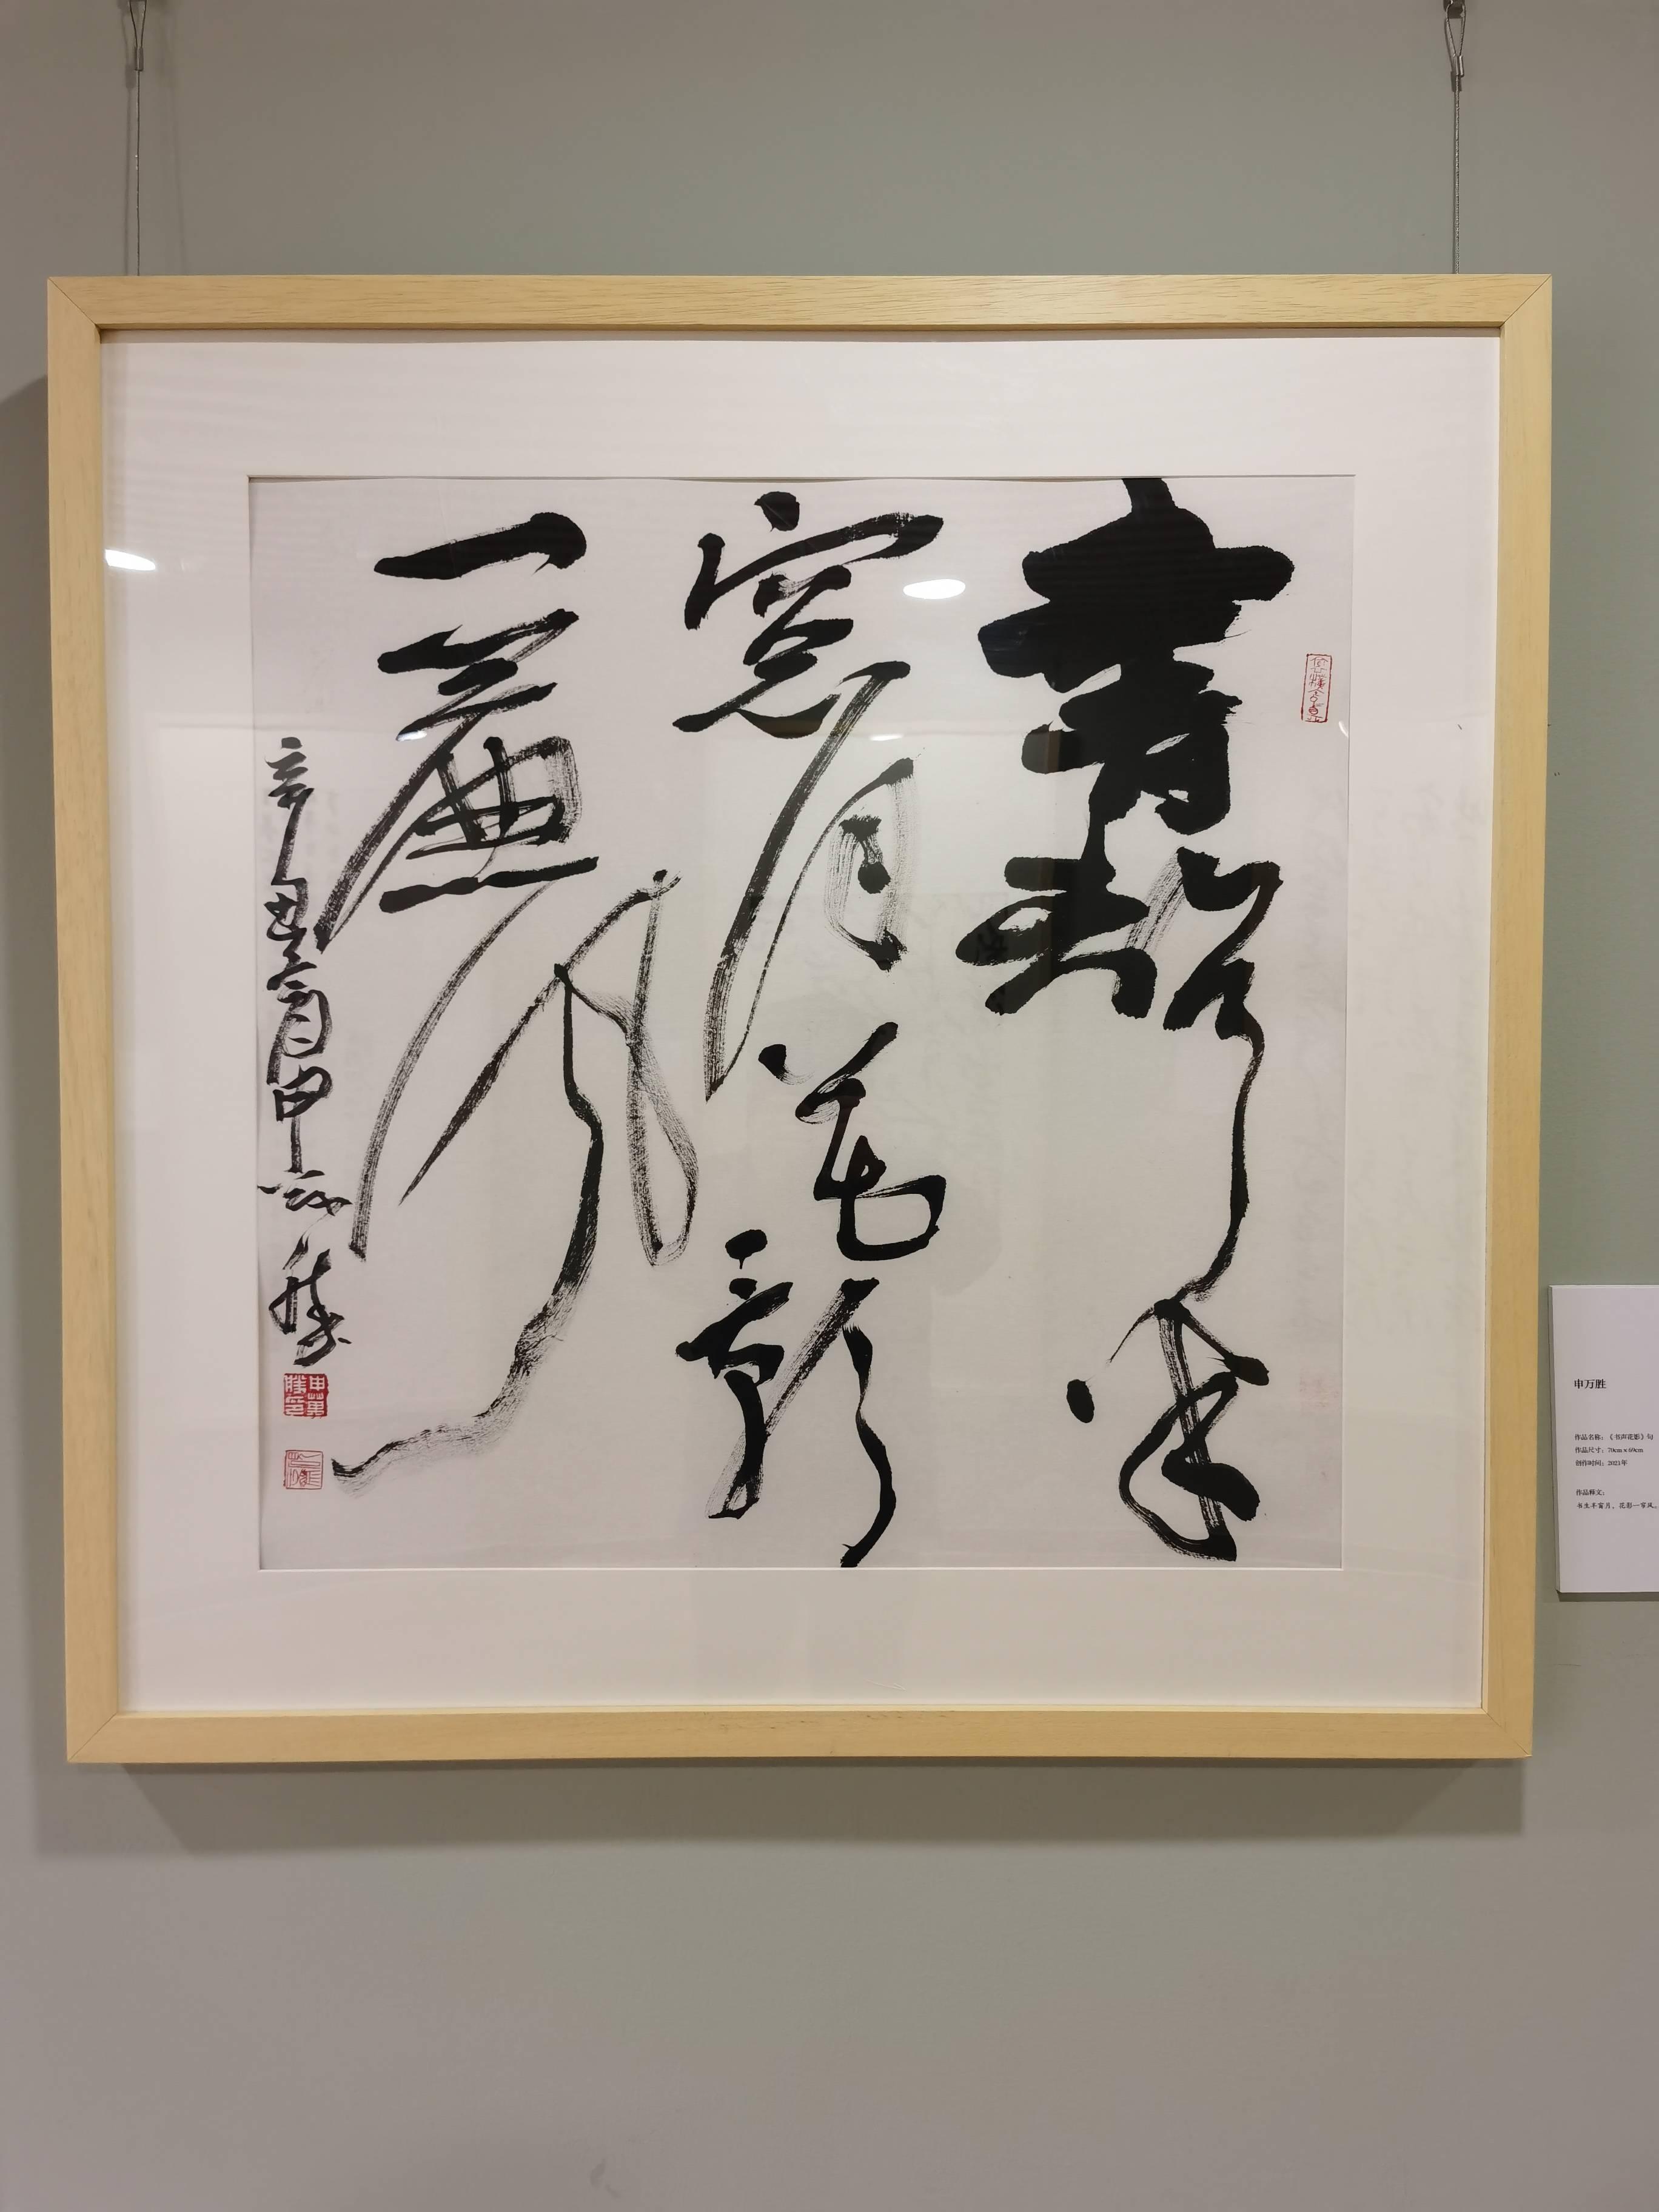 書聲半
窓月花影
一簾風
辛丑夏月申万勝
申萬勝印
申万胜
作品名称：《书声花影》句
作品尺寸：70cm×69cm
创作时间：2021年
作品释文：
书生半窗月，花影一帘风。